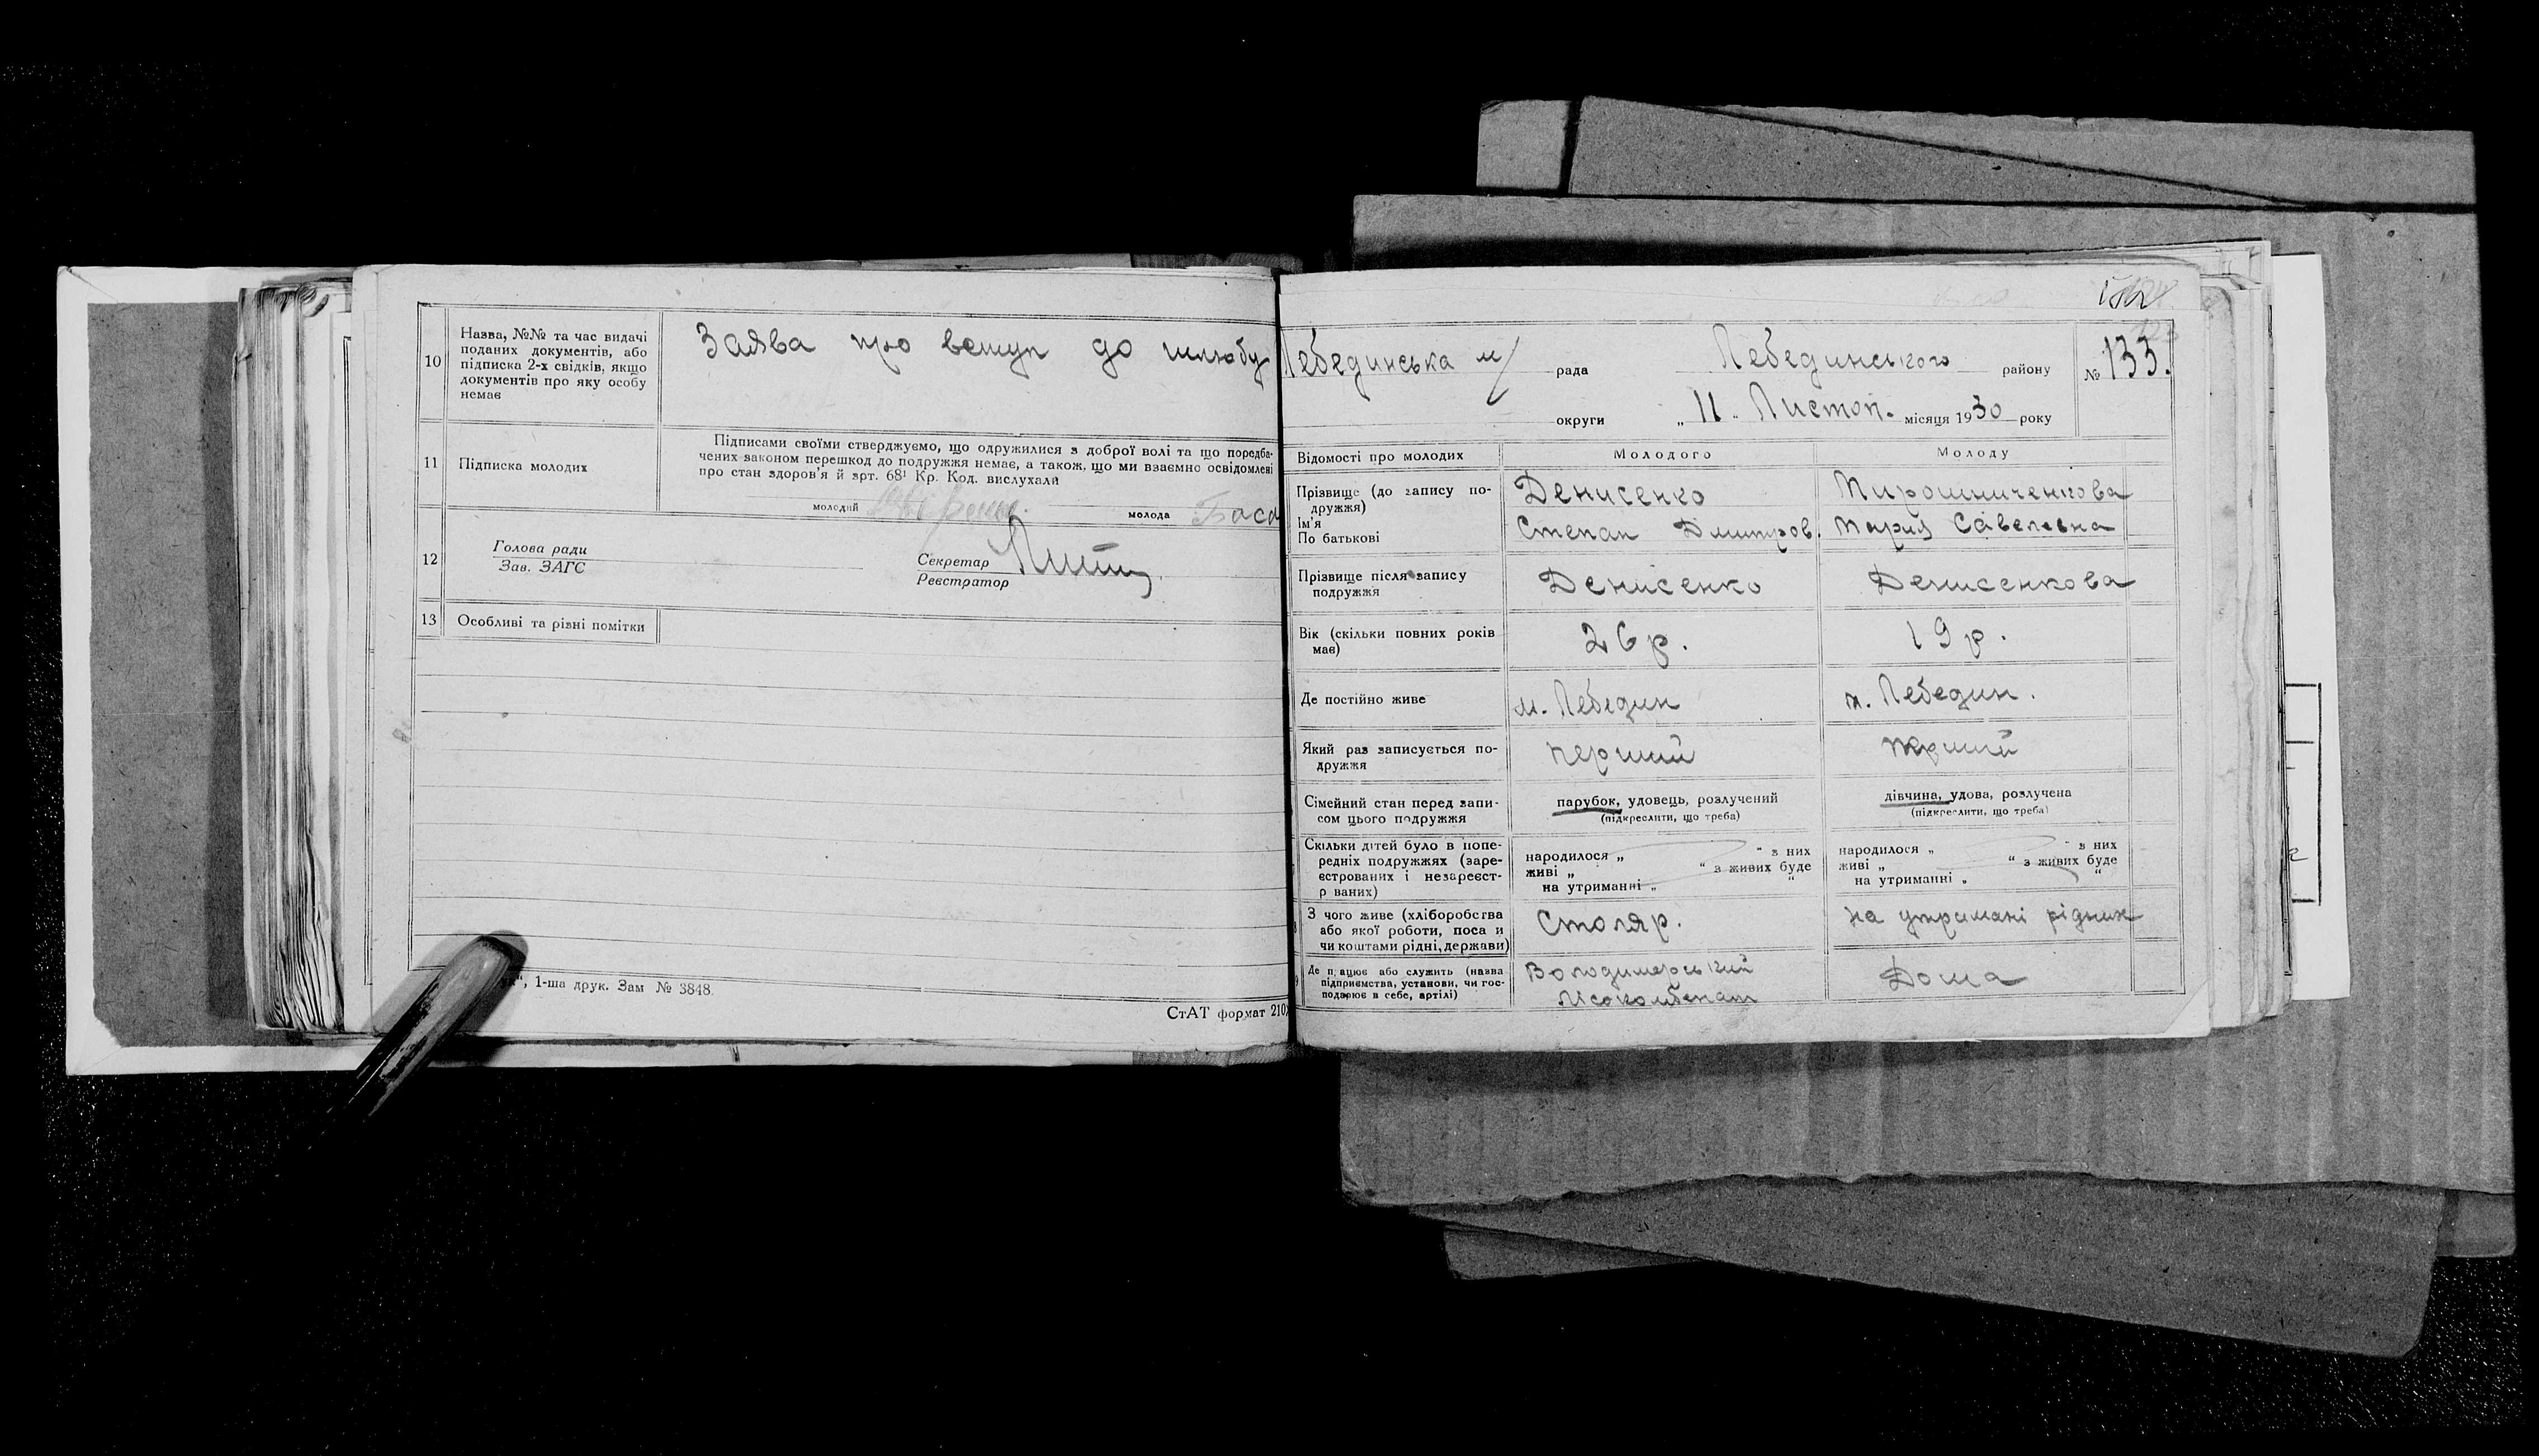 10
Назва, №№ та час видачі
поданих документів, або
підписка 2-х свідків, якщо
документів про яку особу
немає
Заява про вступ до шлюбу
11
Підписка молодих
Підписами своїми стверджуємо, що одружилися з доброї волі та що поредба-
чених законом перешкод до подружжя немає, а також, що ми взаємно освідомлені
про стан здоров'я й арт. 68¹ Кр. Код. вислухали
молодий
молода Баса
12
Голова ради
Зав. ЗАГС
Секретар
Реєстратор
13
Особливі та різні помітки
1-ша друк. Зам № 3848.
СтАТ формат 210
Лебединська м/ рада Лебединського району № 133.
округи „ 11 „ Листоп. місяця 1930 року
Відомості про молодих
Молодого
Молоду
Прізвище (до запису по-
дружжя)
Ім'я
По батькові
Денисенко
Степан Дмитров.
Мирошниченкова
Мария Савелевна
Прізвище після запису
подружжя
Денисенко
Денисенкова
Вік (скільки повних років
має)
26 р.
19 р.
Де постійно живе
м. Лебедин
м. Лебедин.
Який раз записується по-
дружжя
перший
перший
Сімейний стан перед запи-
сом цього подружжя
парубок, удовець, розлучений
(підкреслити, що треба)
дівчина, удова, розлучена
(підкреслити, що треба)
Скільки дітей було в попе-
редніх подружжях (заре-
єстрованих і незареєст-
р ваних)
народилося „ “ з них
живі „ “ з живих буде
на утриманні „ “
народилося „ “ з них
живі „ “ з живих буде
на утриманні „ “
З чого живе (хліборобства
або якої роботи, поса и
чи коштами рідні, держави)
Столяр.
на утримані рідних
Де працює або служить (назва
підприємства, установи, чи гос-
подарює в себе, артілі)
Володимерський
Лісокомбенат
Дома